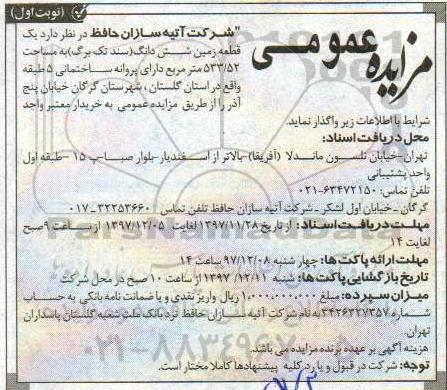 (نوبت اول)
مزایده عمومی
"شرکت آتیه سازان حافظ در نظر دارد یک
قطعه زمین شش دانگ(سند تک برگ)به مساحت
۵۳۳/۵۲ متر مربع دارای پروانه ساختمانی ۵ طبقه
واقع در استان گلستان ، شهرستان گرگان خیابان پنج
آذر را از طریق مزایده عمومی به خریدار معتبر واجد
شرایط با اطلاعات زیر واگذار نماید.
محل دریافت اسناد:
تهران-خیابان نلسون ماندلا (آفریقا)-بالاتر از اسفندیار-بلوار صبا-پ ۱۵ -طبقه اول
واحد پشتیبانی
تلفن تماس: ۶۳۴۷۲۱۵۰-۰۲۱
گرگان -خیابان اول لشکر -شرکت آتیه سازان حافظ تلفن تماس : ۳۲۲۵۳۶۶۰-۰۱۷
مهلت دریافت اسناد: از تاریخ ۱۳۹۷/۱۱/۲۸ لغایت ۱۳۹۷/۱۲/۰۵ از ساعت ۹صبح
لغایت ۱۴
مهلت ارائه پاکت ها: چهار شنبه ۹۷/۱۲/۰۸ ساعت ۱۴
تاریخ بازگشایی پاکت ها: شنبه ۱۳۹۷/۱۲/۱۱ از ساعت ۱۰ صبح در محل شرکت
میزان سپرده: مبلغ ۱,۰۰۰,۰۰۰,۰۰۰ ریال واریز نقدی و یا ضمانت نامه بانکی به حساب
شماره ۳۴۲۶۳۲۷۳۵۷ به نام شرکت آتیه سازان حافظ نزد بانک ملت شعبه گلستان پاسداران
تهران.
هزینه آگهی بر عهده برنده مزایده می باشد.
توجه: شرکت در قبول و یا رد کلیه پیشنهادها کاملا مختار است.
۰۲۱-۸۸۳۴۹۶۷۰